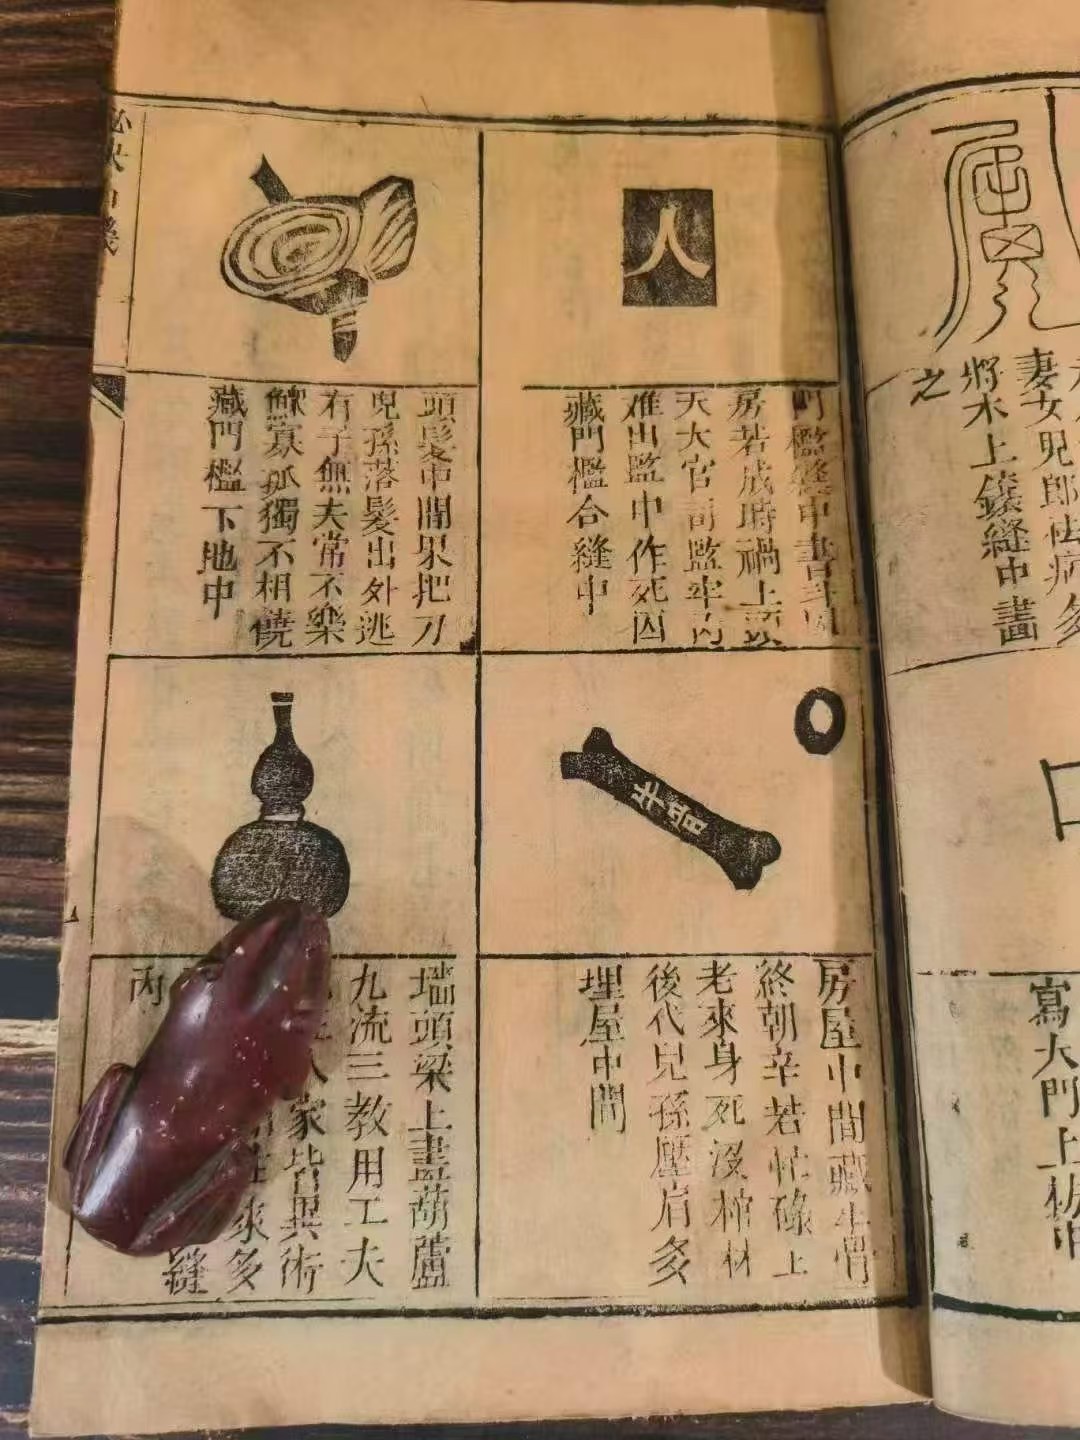 妻女兒郎怯病多
將木上鎹縫中畫
之
寫大門上枋中
人
門檻縫中書囚
房若成時禍上頭
天大官司監牢內
难出監中作死囚
藏門檻合縫中
頭髮中間裹把刀
兒孫落髮出外逃
有子無夫常不樂
鰥寡孤獨不相饒
藏門檻下地中
牛骨
房屋中間藏牛骨
終朝辛若忙碌上
老來身死沒棺材
後代兒孫壓肩多
埋屋中間
墻頭梁上畫葫蘆
九流三教用工夫
人家皆異術
來多
縫
丙